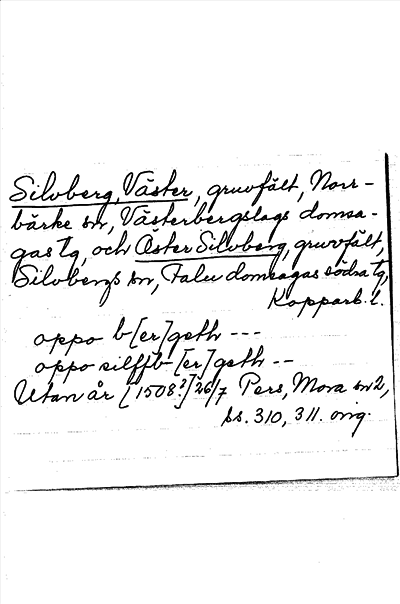 Silvberg, Väster, gruvfält, Norr-
bärke sn, Västerbergslags domsa-
gas tg, och Öster Silvberg, gruvfält,
Silvbergs sn, Falu domsagas södra tg,
Kopparb. l.
oppo b[er]geth ---
oppo silffb[er]geth --
Utan år [1508?] 26/7 Pers, Mora sn 2,
ss. 310, 311. orig.